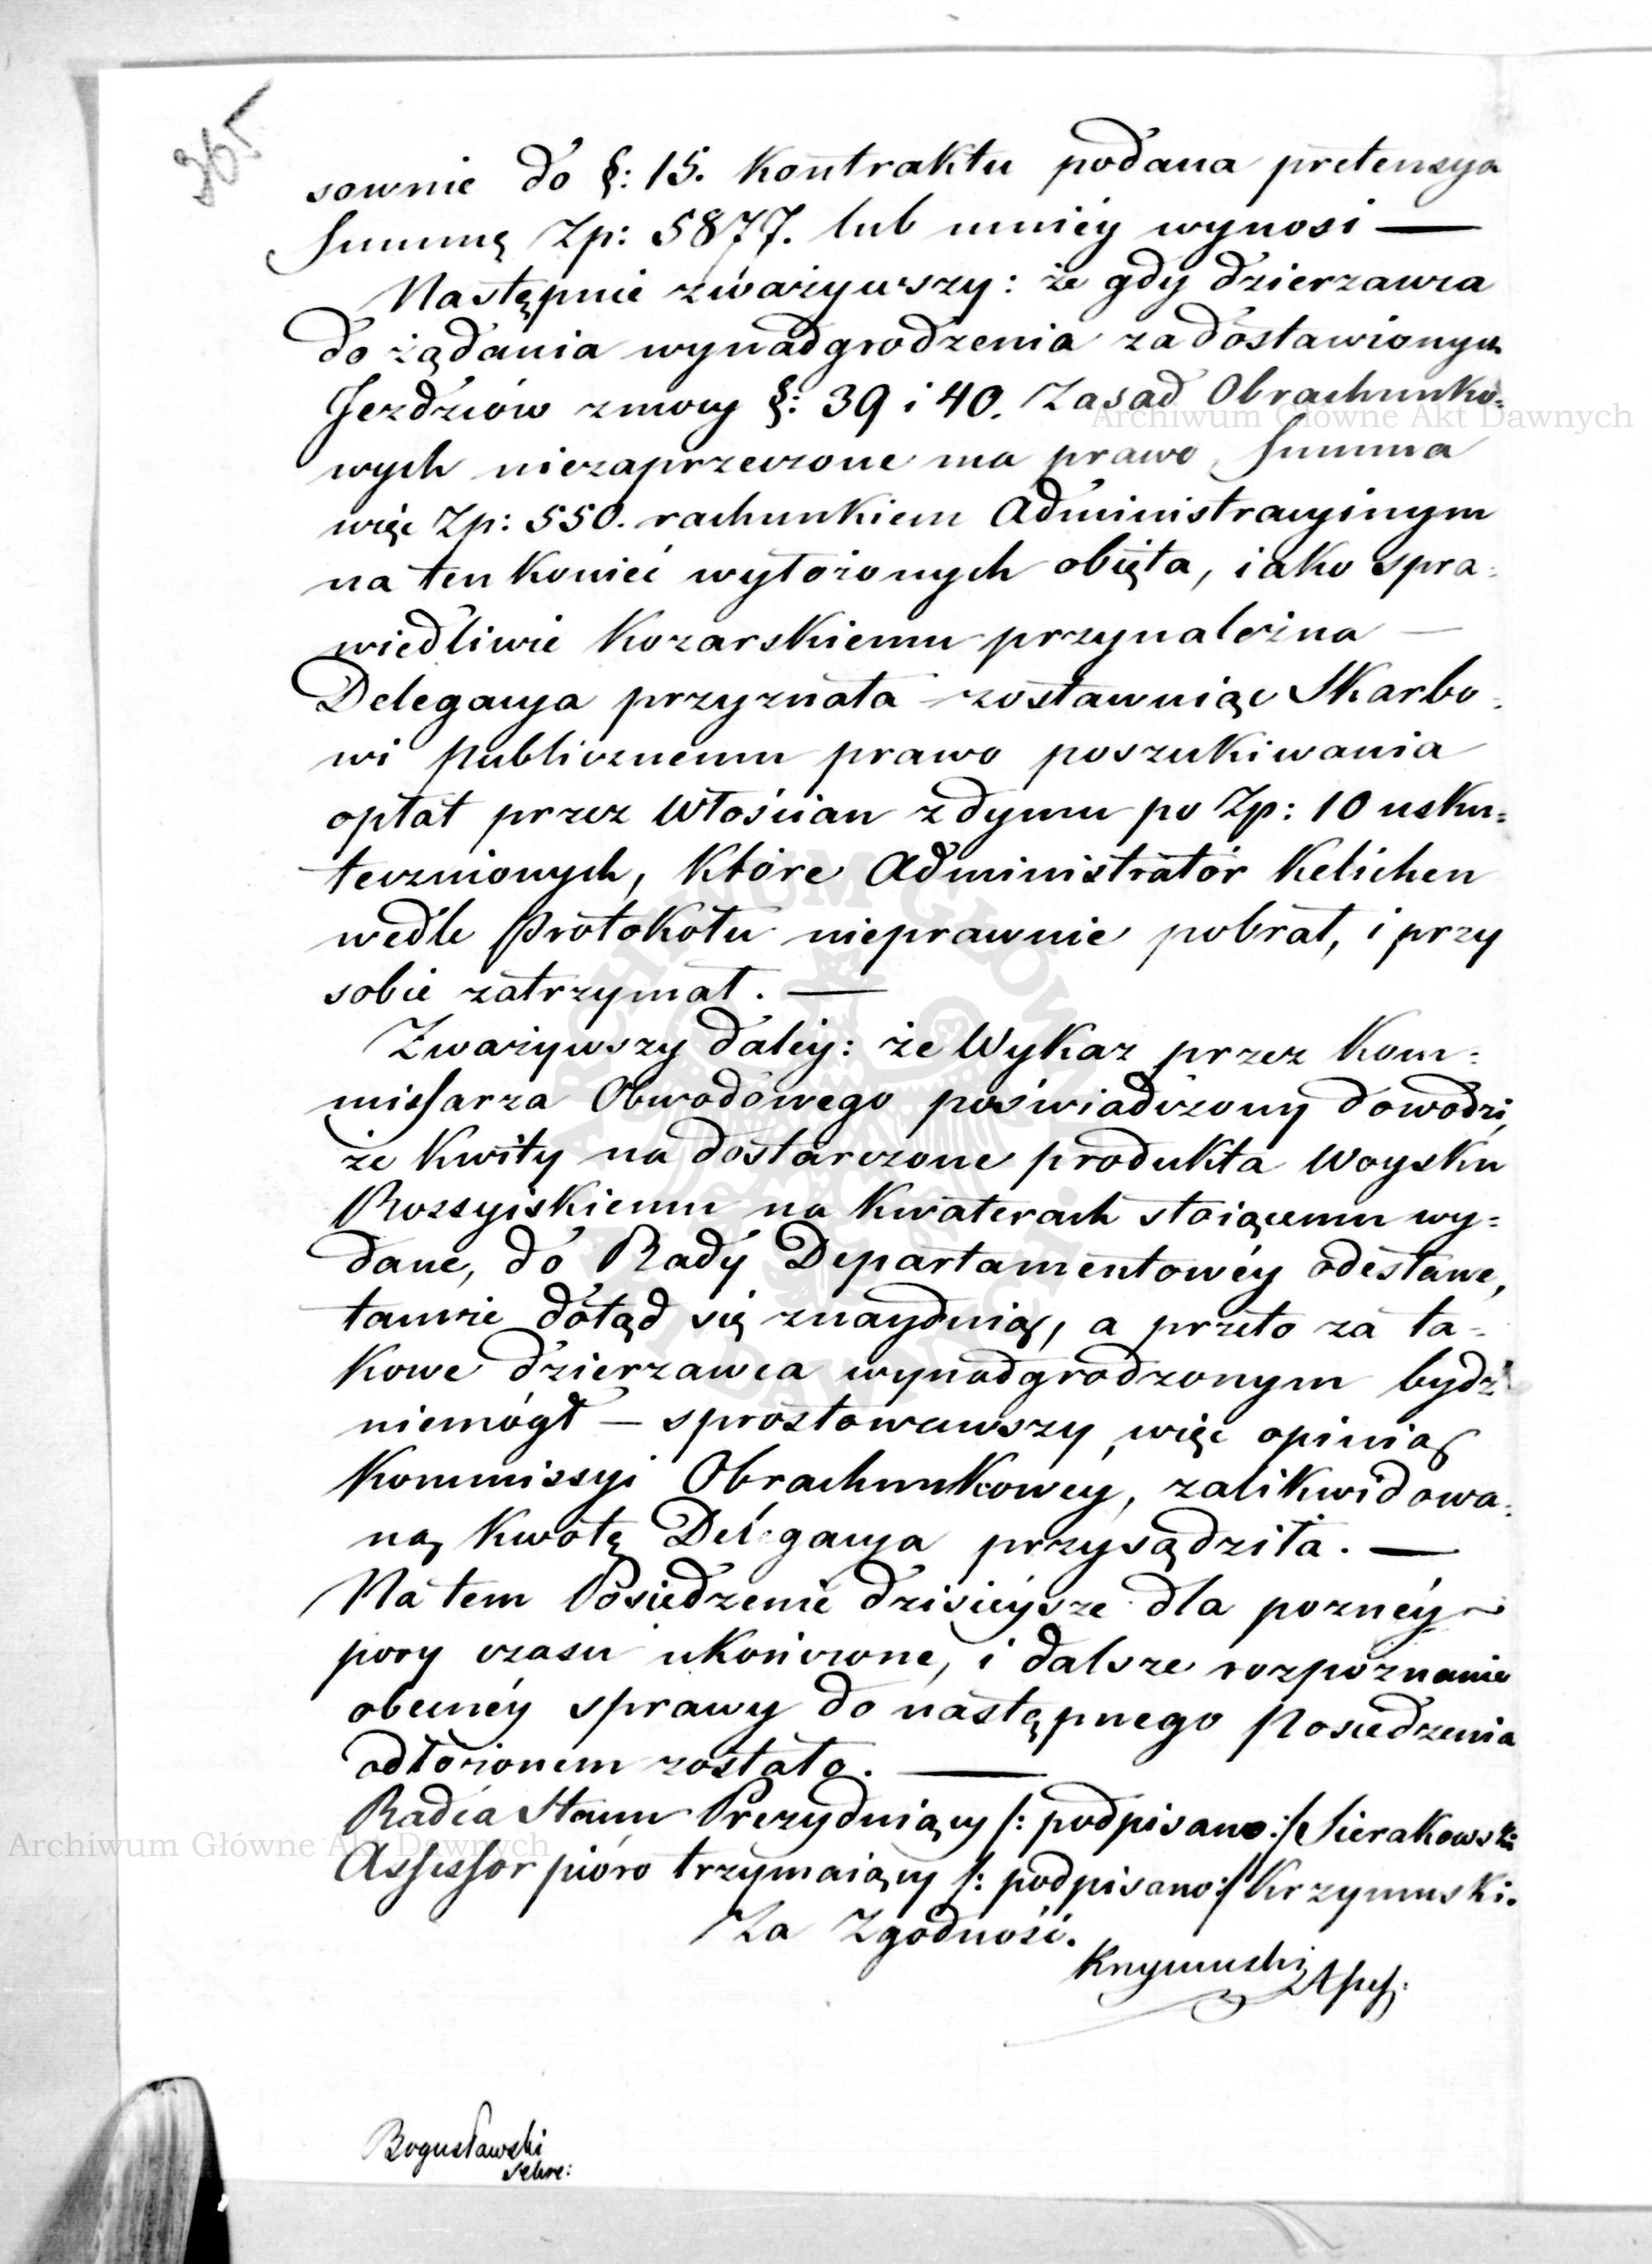 365
sownie do §: 15. Kontraktu podana pretensya
Summę Zp: 5877. lub mniéy wynosi —
Następnie zważywszy: że gdy dzierzawca
do żądania wynadgrodzenia za dostawionych
Jezdzców zmocy §: 39 i 40. Zasad Obrachunko=
wych niezaprzeczone ma prawo, Summa
więc Zp: 550. rachunkiem Administracyinym
na ten koniec wyłożonych obięta, iako spra=
wiedliwie Kozarskiemu przynależna —
Delegacya przyznała zostawuiąc Skarbo=
wi publicznemu prawo poszukiwania
opłat przez Włościan z dymu po Zp: 10 usku=
tecznionych, które Administrator Kelichen
wedle Protokołu nieprawnie pobrał, i przy
sobie zatrzymał. —
Zważywszy daléy: że Wykaz przez Kom=
missarza Obwodowego poświadczony dowodzi,
że Kwity na dostarczone produkta Woysku
Rossyiskiemu na Kwaterach stoiącemu wy=
dane, do Rady Departamentowéy odesłane,
tamże dotąd się znayduią, a przeto za ta=
kowe dzierzawca wynadgrodzonym bydź
niemógł — sprostowawszy więc opinią
Kommissyi Obrachunkowéy, zalikwidowa=
ną Kwotę Delegacya przysądziła. —
Na tem Posiedzenie dzisiéysze dla pozney
pory czasu ukończone, i dalsze rozpoznanie
obecnéy sprawy do następnego Posiedzenia
odłożonem zostało. —
Radca Stanu Prezyduiący /: podpisano :/ Sierakowski
Assessor pióro trzymaiący /: podpisano :/ Krzymuski.
Za Zgodność.
Krzymuski Assess:
Bogusławski
Sekre:
Archiwum Główne Akt Dawnych
Archiwum Główne Akt Dawnych
ARCHIWUM GŁÓWNE AKT DAWNYCH